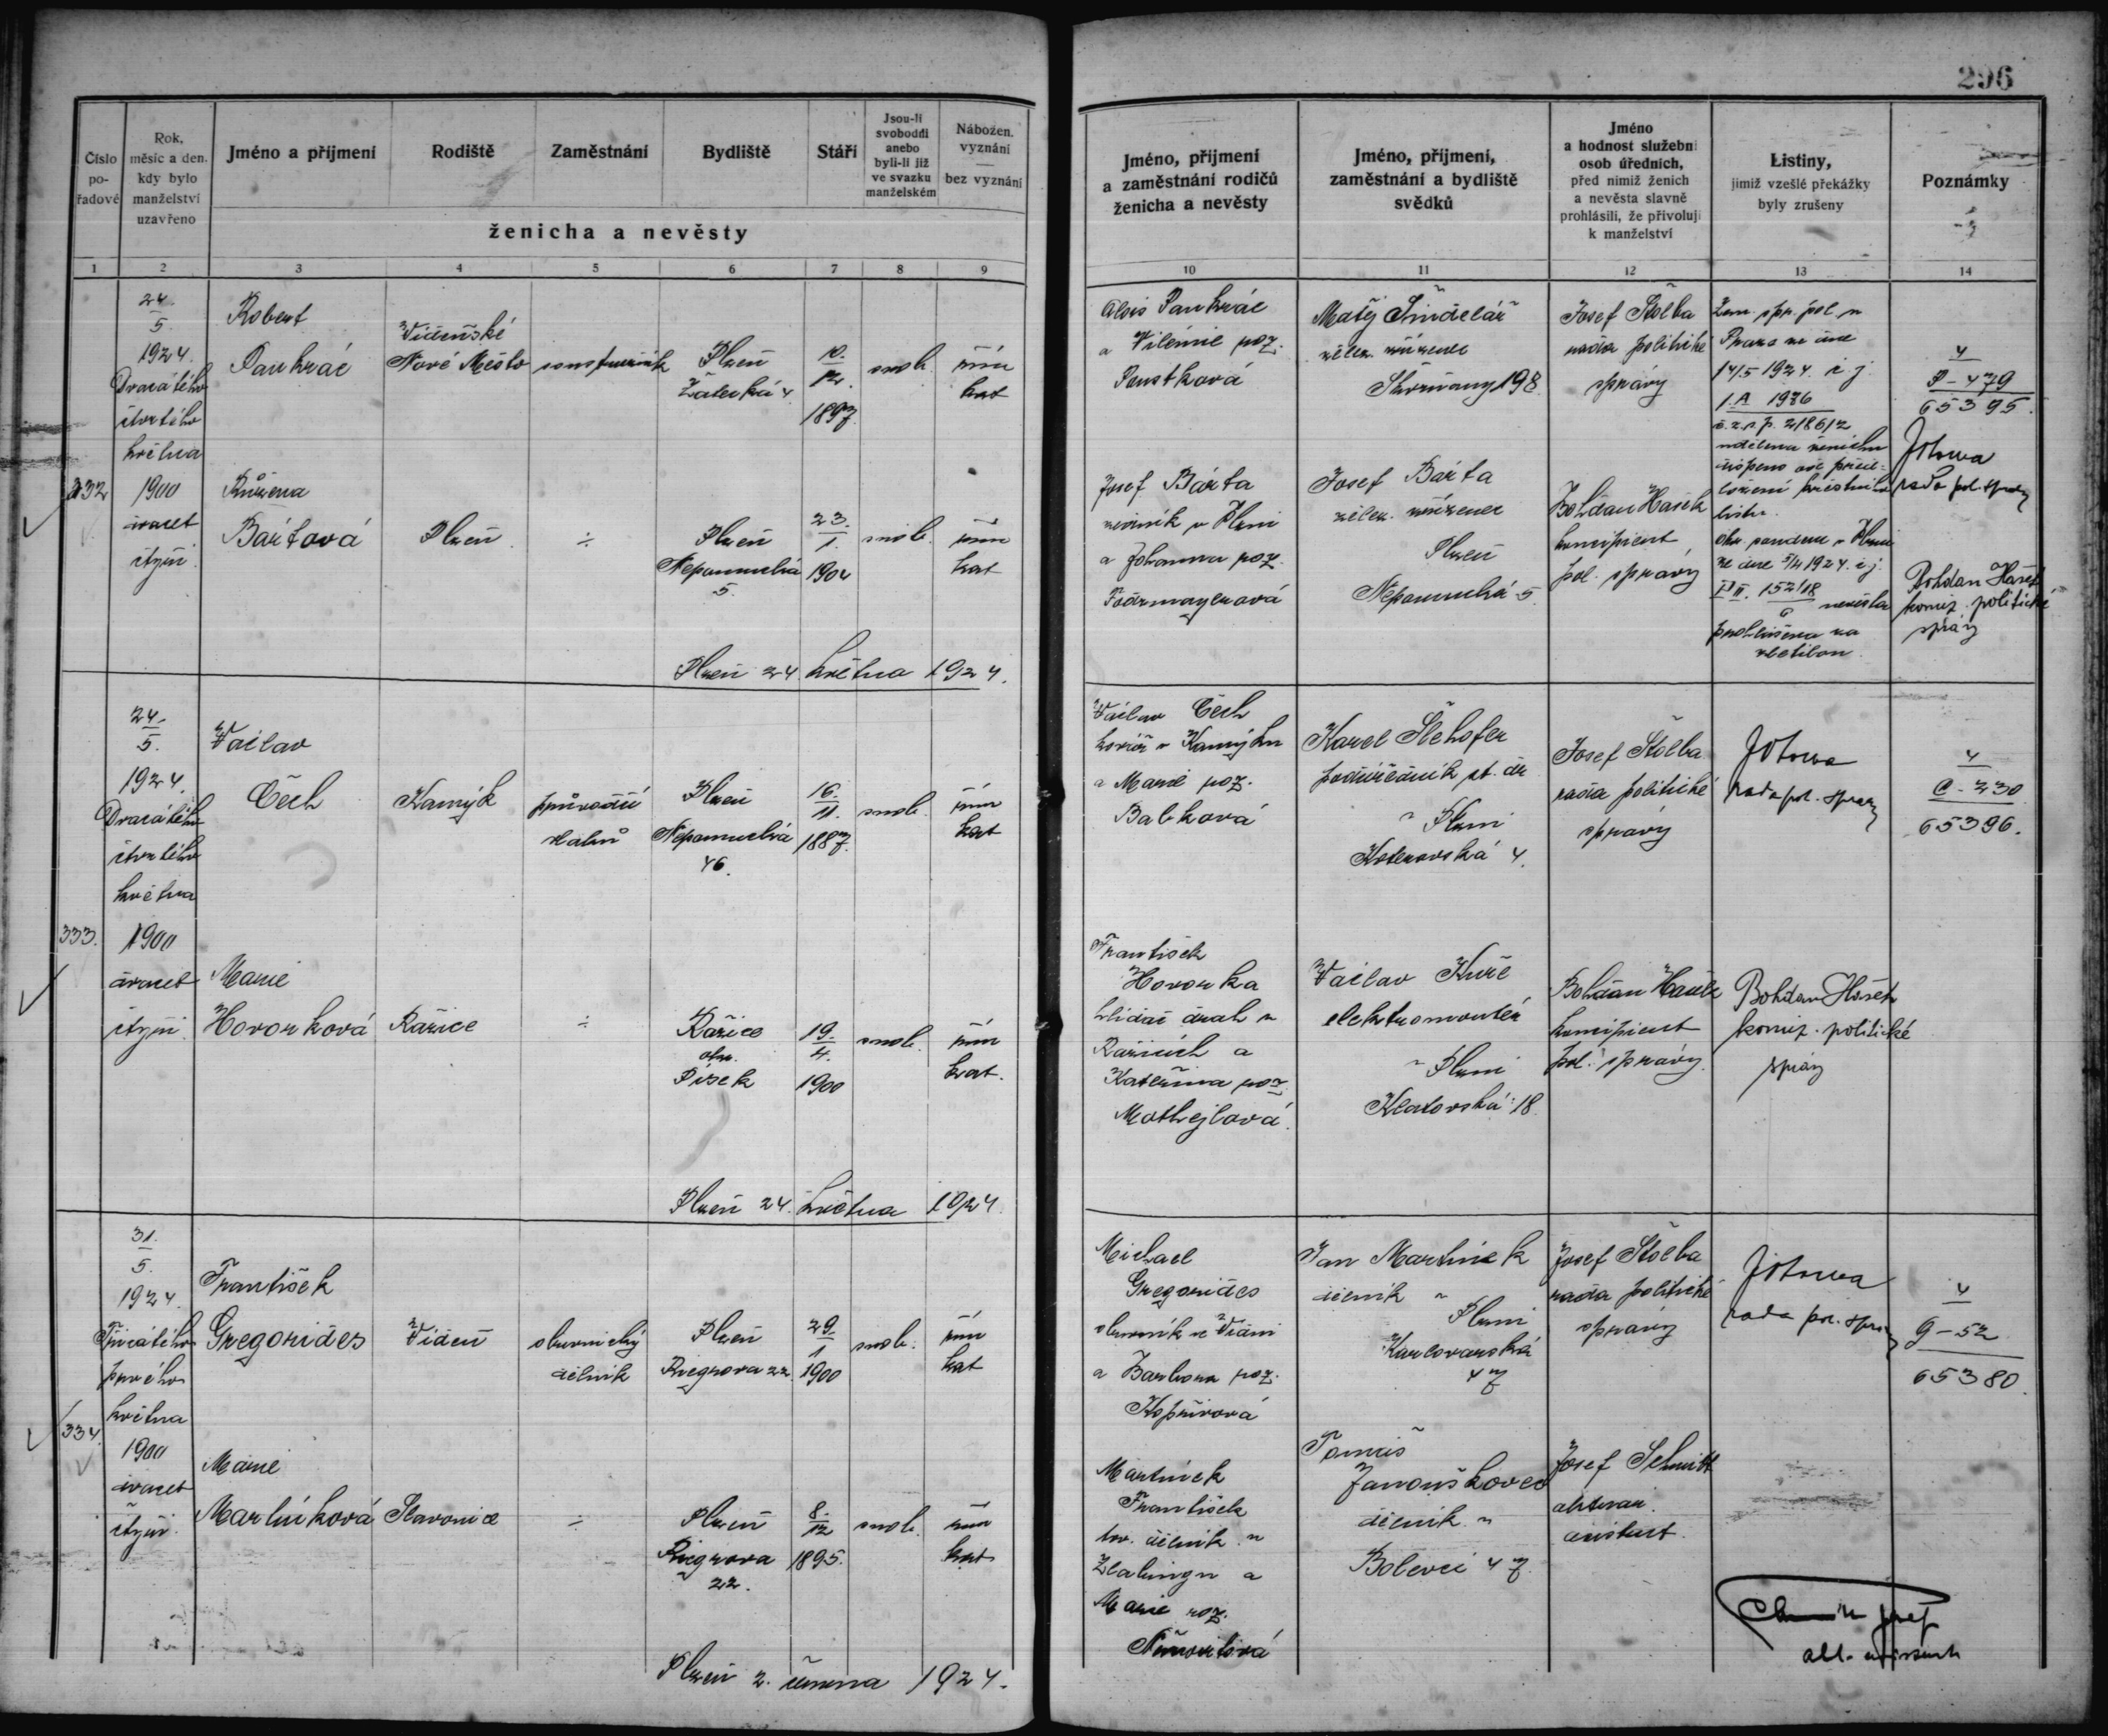 296
Číslo pořadové
Rok, měsíc a den, kdy bylo manželství uzavřeno
Jméno a přijmení
Rodiště
Zaměstnání
Bydliště
Stáří
Jsou-li svobodni anebo byli-li již ve svazku manželském
Nábožen. vyznání — bez vyznání
ženicha a nevěsty
Jméno, přijmení a zaměstnání rodičů ženicha a nevěsty
Jméno, přijmení, zaměstnání a bydliště svědků
Jméno a hodnost služební osob úředních, před nimiž ženich a nevěsta slavně prohlásili, že přivolují k manželství
Listiny, jimiž vzešlé překážky byly zrušeny
Poznámky
1 2 3 4 5 6 7 8 9 10 11 12 13 14
332
24.
5.
1924.
Dvacátého
čtvrtého
května
1900
dvacet
čtyři
Robert
Pankrác
Vídeňské
Nové Město
Plzeň
Žatecká 4
10.
12.
1897
svob.
řím
kat
Růžena
Bártová
Plzeň
÷
Plzeň
Nepomucká
5.
23.
1.
1904
svob.
řím
kat
Plzeň 24. května 1924.
Alois Pankrác
a Vilémie roz.
Josef Bárta
v Plzni
a Johanna roz.
Matěj Šindelář
železn. zřízenec
198
Josef Bárta
železn. zřízenec
Plzeň
Nepomucká 5.
Josef Štolba
rada politické
správy
Bohdan Hašek
koncipient
pol. správy
Zem. spr. pol. v
Praze ze dne
14/5 1924. č. j.
1.A 1986
č. z. s. p. 218612
listu.
ze dne 5/4 1924. č j.
nevěsta
4
P - 479
65395.
rada pol. správy
Bohdan Hašek
koncip. politické
správy
333.
24.
5.
1924.
Dvacátého
čtvrtého
května
1900
dvacet
čtyři
Václav
Čech
Kamýk
průvodčí
vlaků
Plzeň
Nepomucká
46.
16.
11.
1887.
svob.
řím
kat
Marie
Hovorková
Ražice
÷
Ražice
okr.
Písek
19.
4.
1900
svob.
řím
kat.
Plzeň 24. května 1924.
Václav Čech
kovář v Kamýku
a Marie roz.
Balková
František
Hovorka
hlídač drah v
Ražicích a
Kateřina roz.
Mathejlová.
Karel Šlehofer
podúředník st. dr.
v Plzni
Koterovská 4.
Václav Kuře
elektromontér
v Plzni
Klatovská 18.
Josef Štolba
rada politické
správy
Bohdan Hašek
koncipient
pol. správy.
rada pol. správy
Bohdan Hašek
koncip. politické
správy
4
C - 330
65396.
334.
31.
5.
1924.
Třicátého
prvého
května
1900
dvacet
čtyři.
František
Gregorides
Vídeň
dělník
Plzeň
Riegrova 22.
29.
1
1900
svob.
řím
kat
Marie
Martínková
Slavonice
÷
Plzeň
Riegrova
22.
8.
12
1895.
svob.
řím
kat
Plzeň 2. června 1924.
Michael
Gregorides
ve Vídni
a Barbora roz.
Kopřivová
Martínek
František
tov. dělník v
Zlabingu a
Marie roz.
Jan Martínek
dělník v
Plzni
Karlovarská
47
Tomáš
Janouškovec
dělník v
Bolevci 47.
Josef Štolba
rada politické
správy
Josef Schmidt
aktuar.
asistent.
rada pol. správy
4
G - 52
65380.